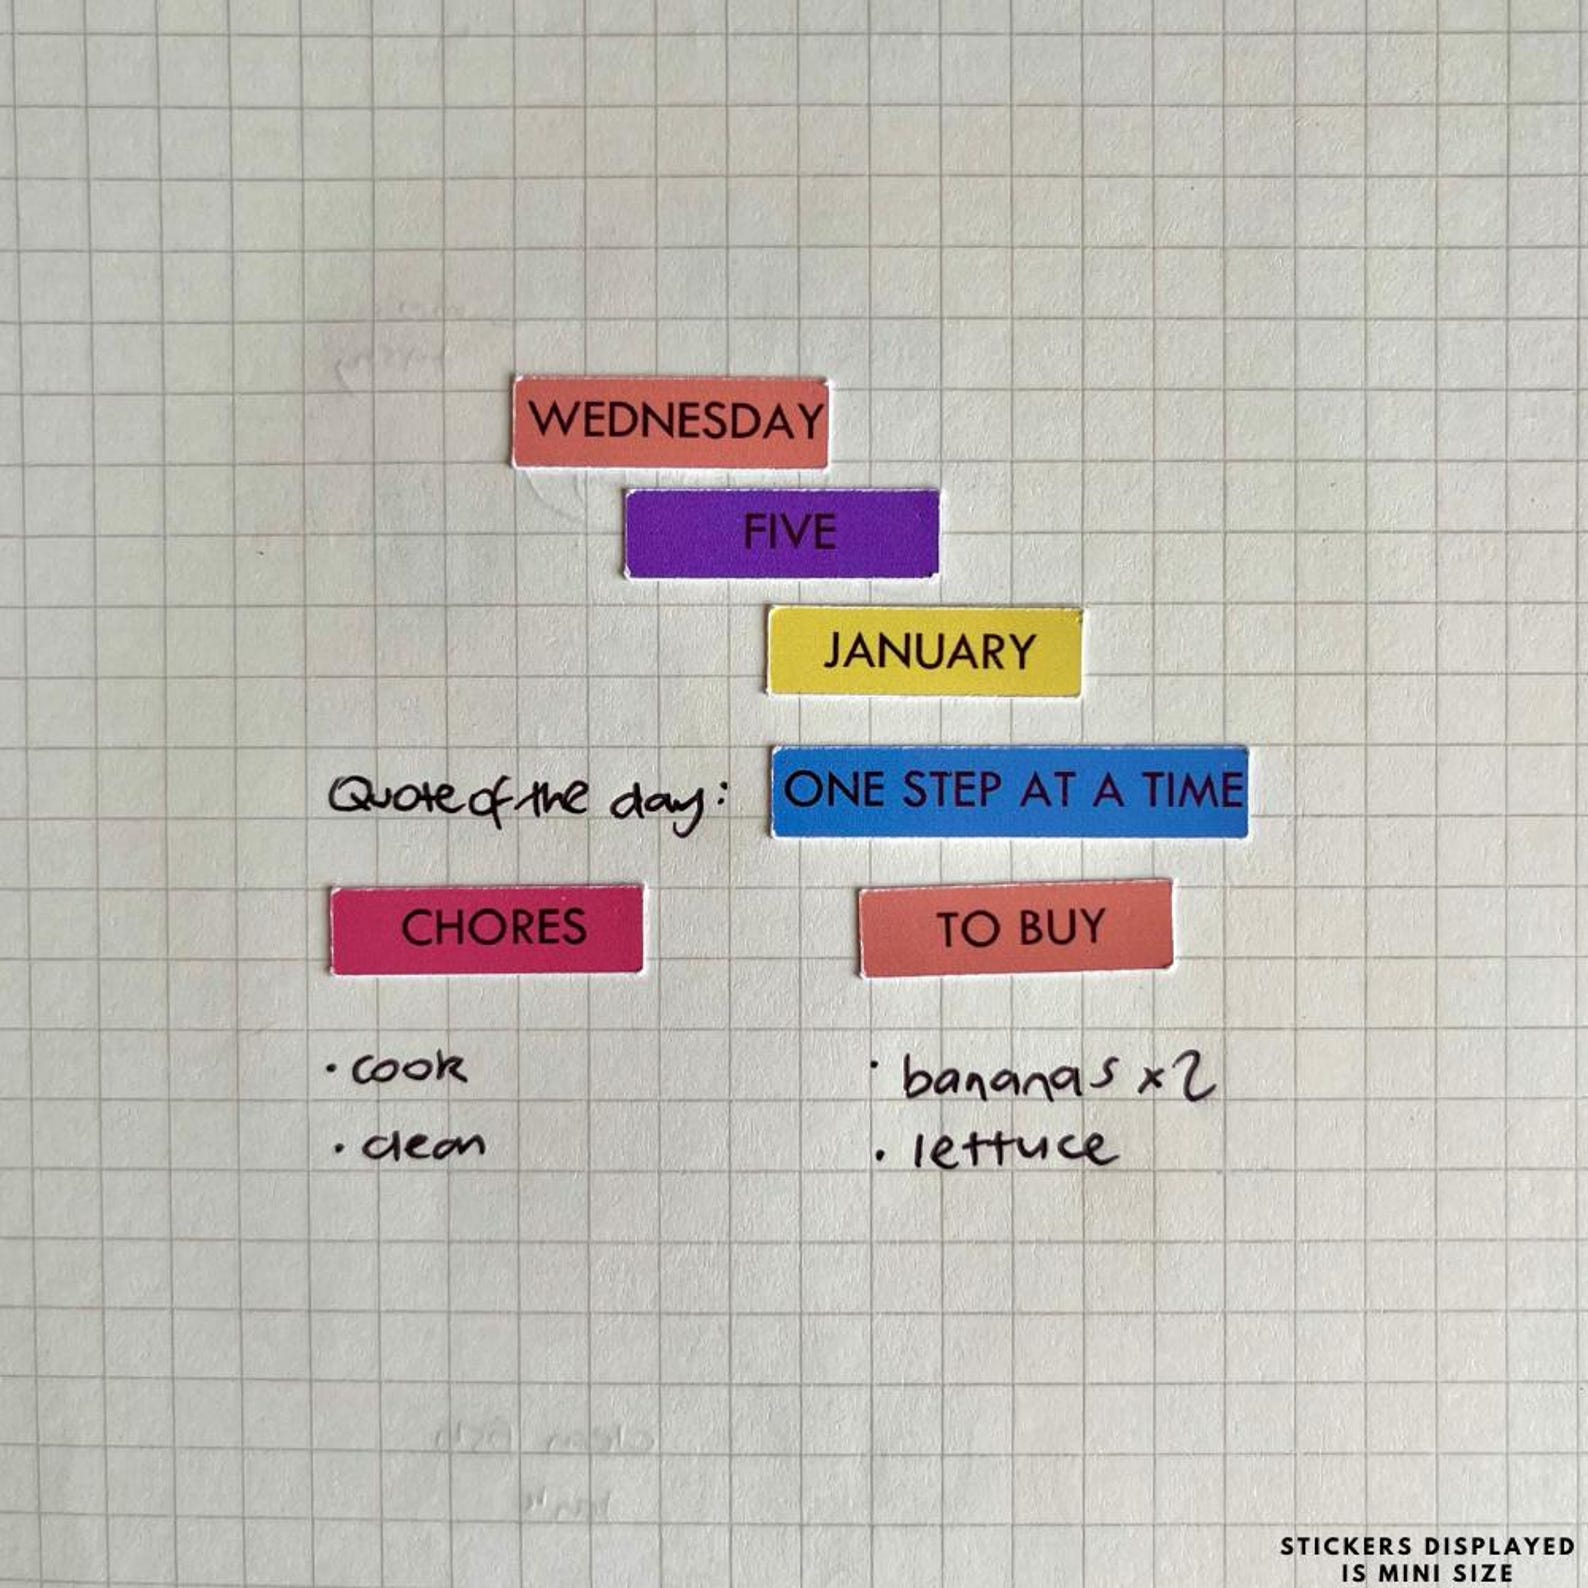 WEDNESDAY
FIVE
JANUARY
Quote of the day: ONE STEP AT A TIME
CHORES
TO BUY
· cook
· clean
· bananas x2
· lettuce
STICKERS DISPLAYED
IS MINI SIZE